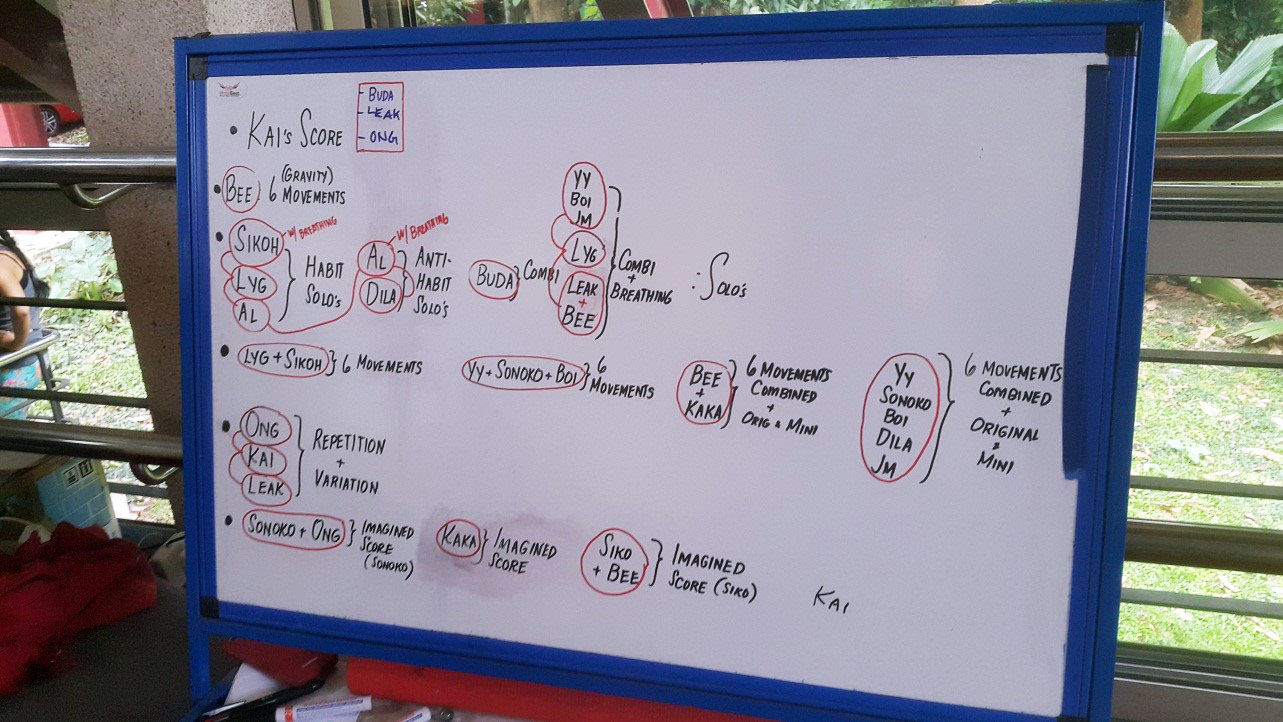 • KAI'S SCORE
- BUDA
- LEAK
- ONG
• BEE : 6 (GRAVITY) MOVEMENTS
• SIKOH W/ BREATHING
LYG
AL
} HABIT
SOLO'S
AL W/ BREATHING
DILA
} ANTI-
HABIT
SOLO'S
BUDA } COMBI
YY
BOI
JM
LYG
LEAK
+
BEE
} COMBI
+
BREATHING
: SOLO'S
• LYG + SIKOH } 6 MOVEMENTS
YY + SONOKO + BOI } 6
MOVEMENTS
BEE
+
KAKA
} 6 MOVEMENTS
COMBINED
+
ORIG & MINI
YY
SONOKO
BOI
DILA
JM
} 6 MOVEMENTS
COMBINED
+
ORIGINAL
&
MINI
• ONG
KAI
LEAK
} REPETITION
+
VARIATION
• SONOKO + ONG } IMAGINED
SCORE
(SONOKO)
KAKA } IMAGINED
SCORE
SIKO
+ BEE
} IMAGINED
SCORE (SIKO)
KAI